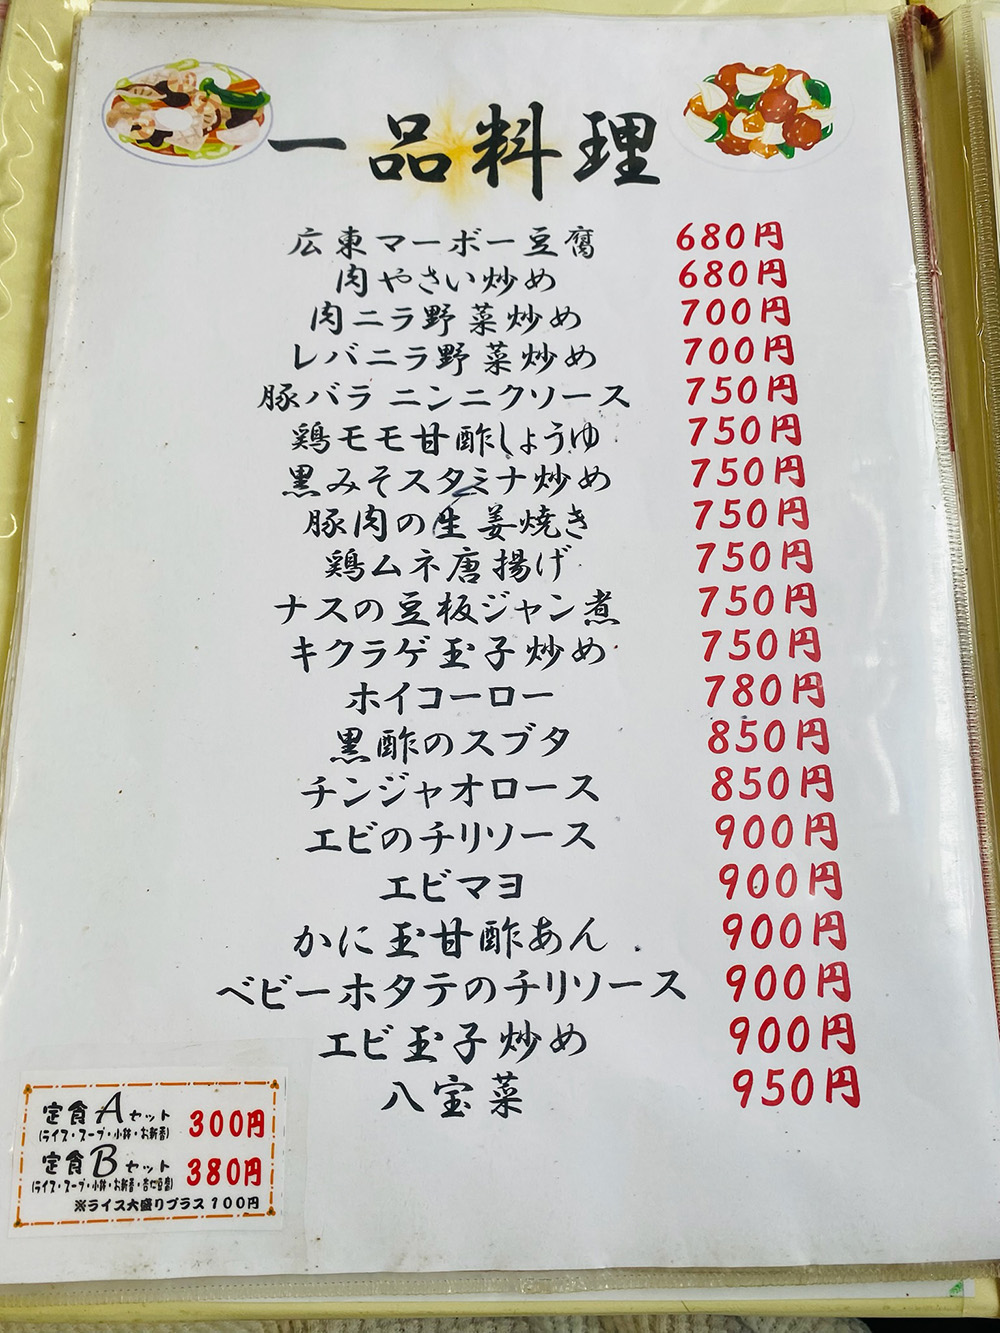 一品料理
広東マーボー豆腐 680円
肉やさい炒め 680円
肉ニラ野菜炒め 700円
レバニラ野菜炒め 700円
豚バラ ニンニクソース 750円
鶏モモ甘酢しょうゆ 750円
黒みそスタミナ炒め 750円
豚肉の生姜焼き 750円
鶏ムネ唐揚げ 750円
ナスの豆板ジャン煮 750円
キクラゲ玉子炒め 750円
ホイコーロー 780円
黒酢のスブタ 850円
チンジャオロース 850円
エビのチリソース 900円
エビマヨ 900円
かに玉甘酢あん 900円
ベビーホタテのチリソース 900円
エビ玉子炒め 900円
八宝菜 950円
定食Aセット 300円
(ライス・スープ・小鉢・お新香)
定食Bセット 380円
(ライス・スープ・小鉢・お新香・杏仁豆腐)
※ライス大盛りプラス100円